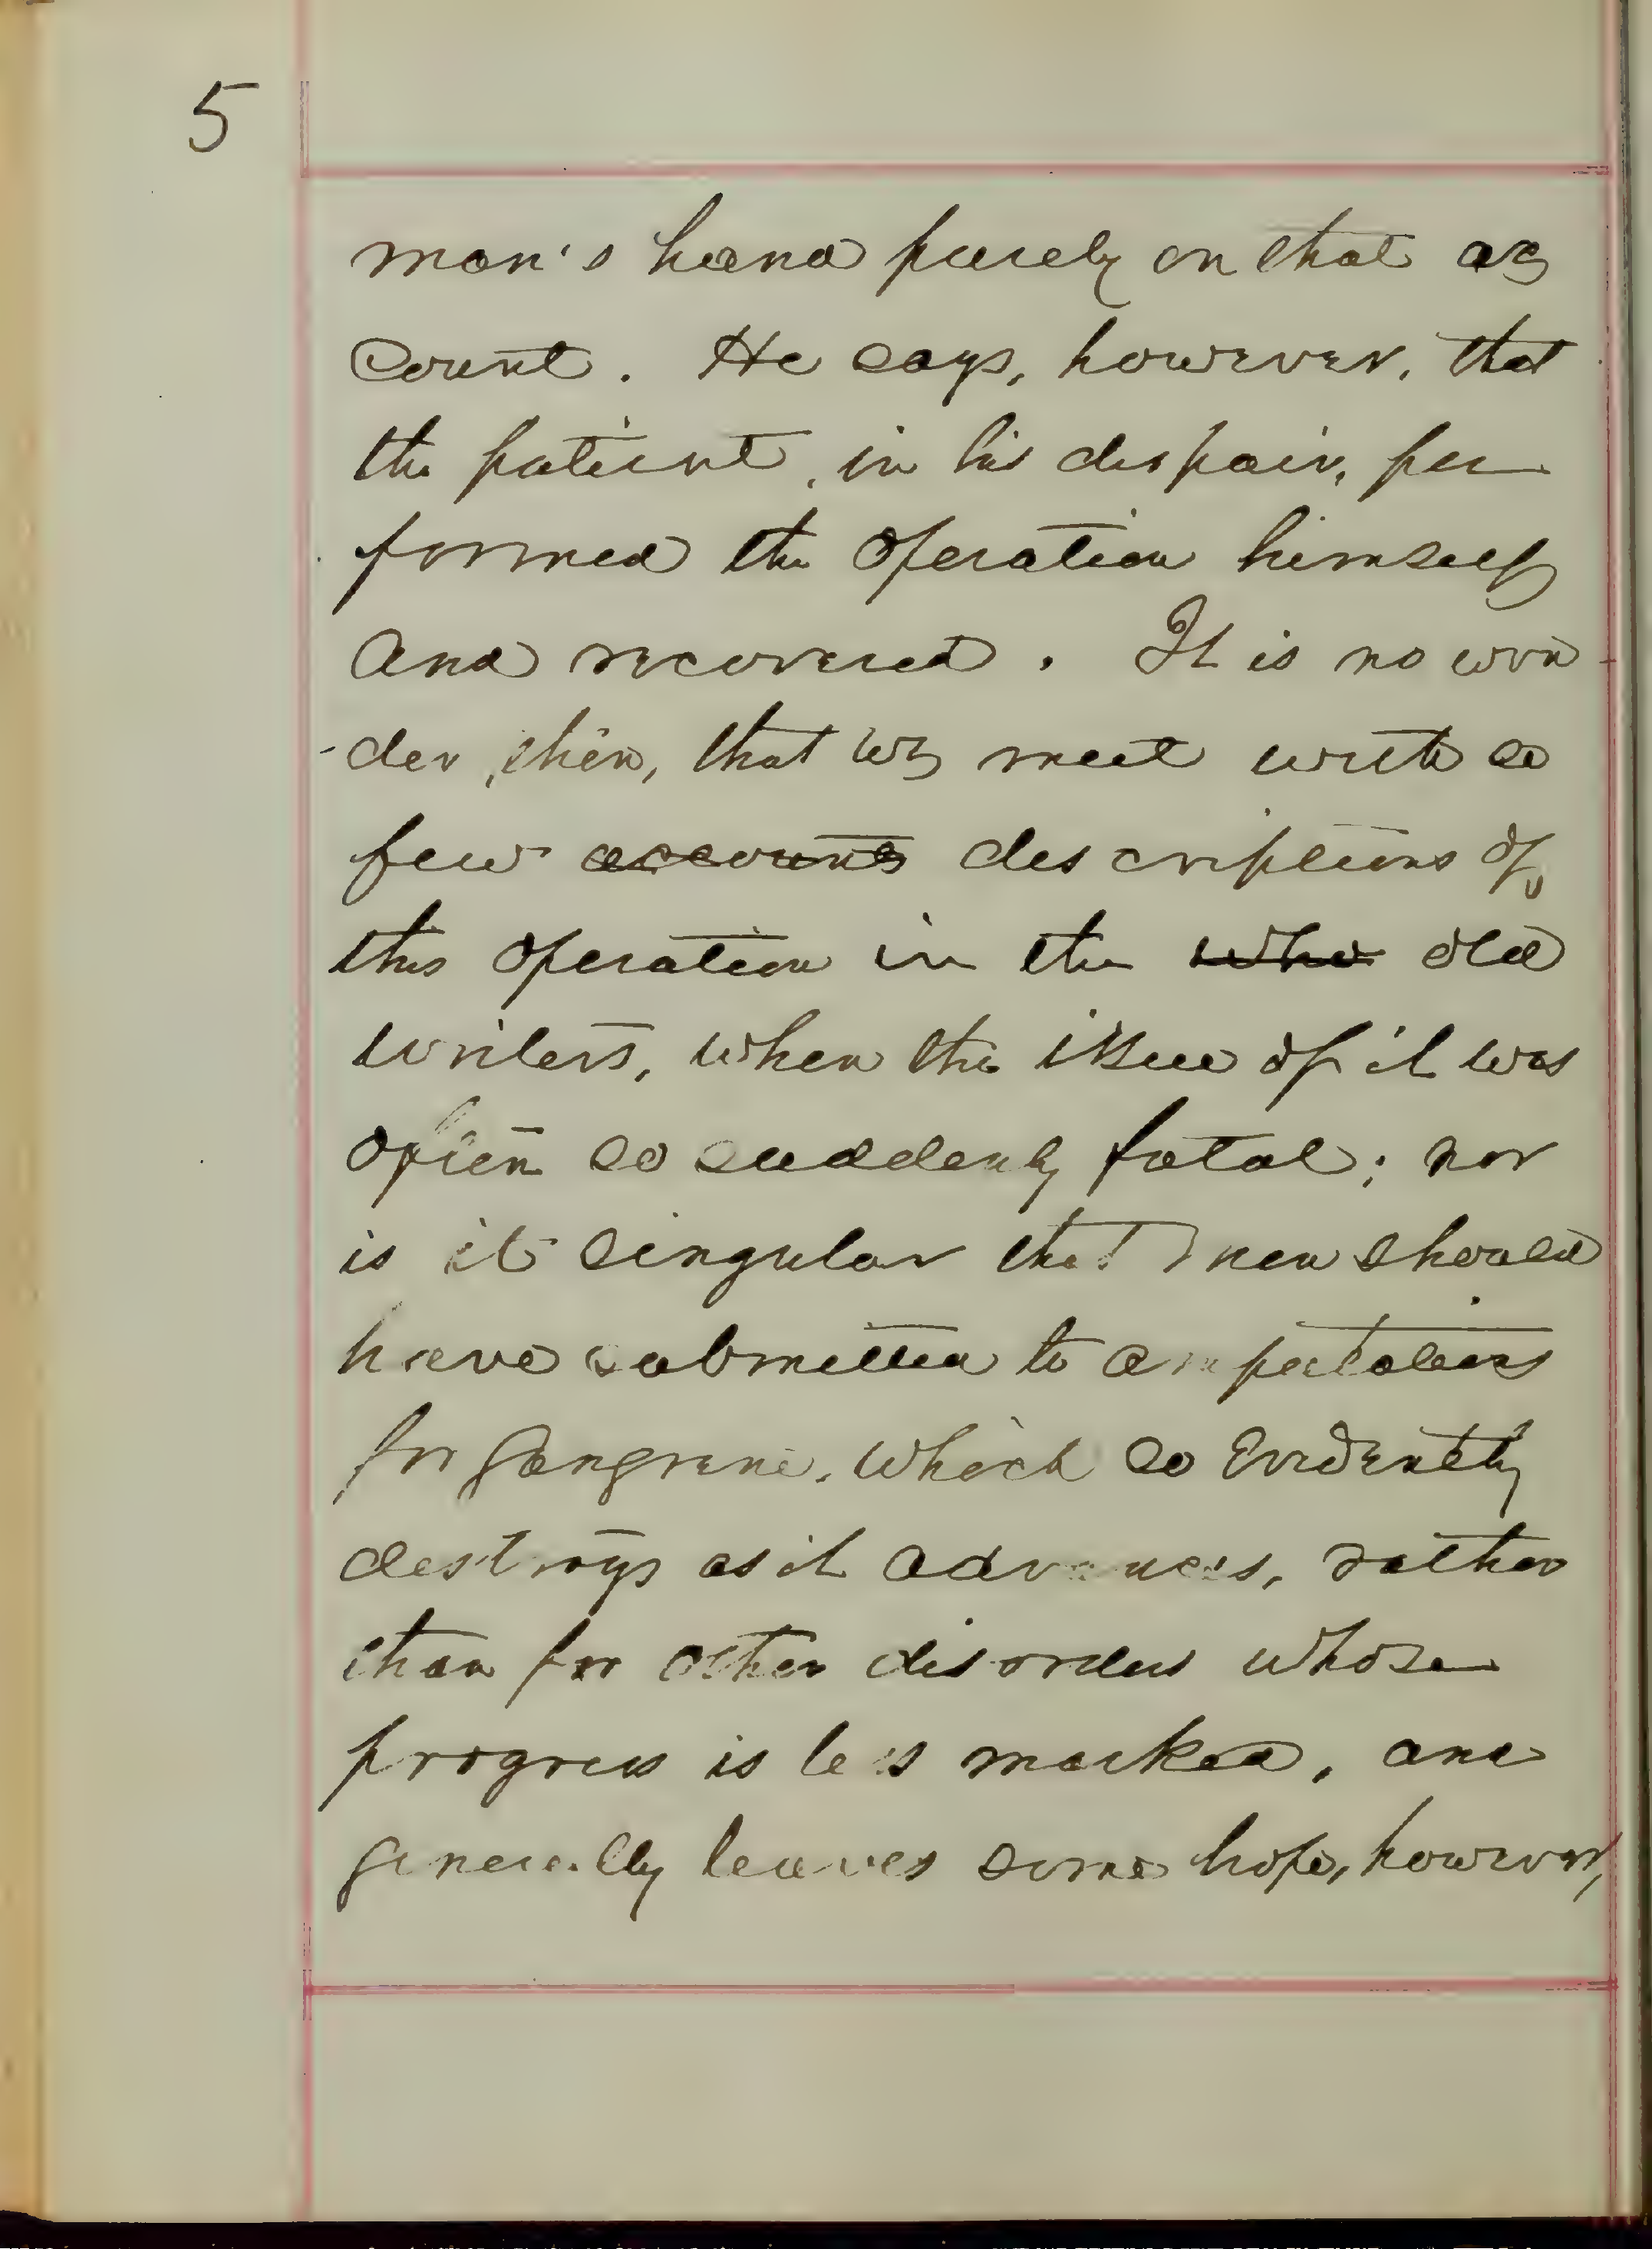 5
man's hand purely on that ac
count. He says, however, that
the patient, in his despair, per
formed the operation himself
and recovered. It is no won
-der, then, that we meet with so
few accounts descriptions of
this operation in the who old
writers, when the issue of it was
often so suddenly fatal; nor
is it singular that men should
have submitted to amputations
for gangrene, which so evidently
destroys as it advances, rather
than for other disorders whose
progress is less marked, and
generally leaves some hope, however,